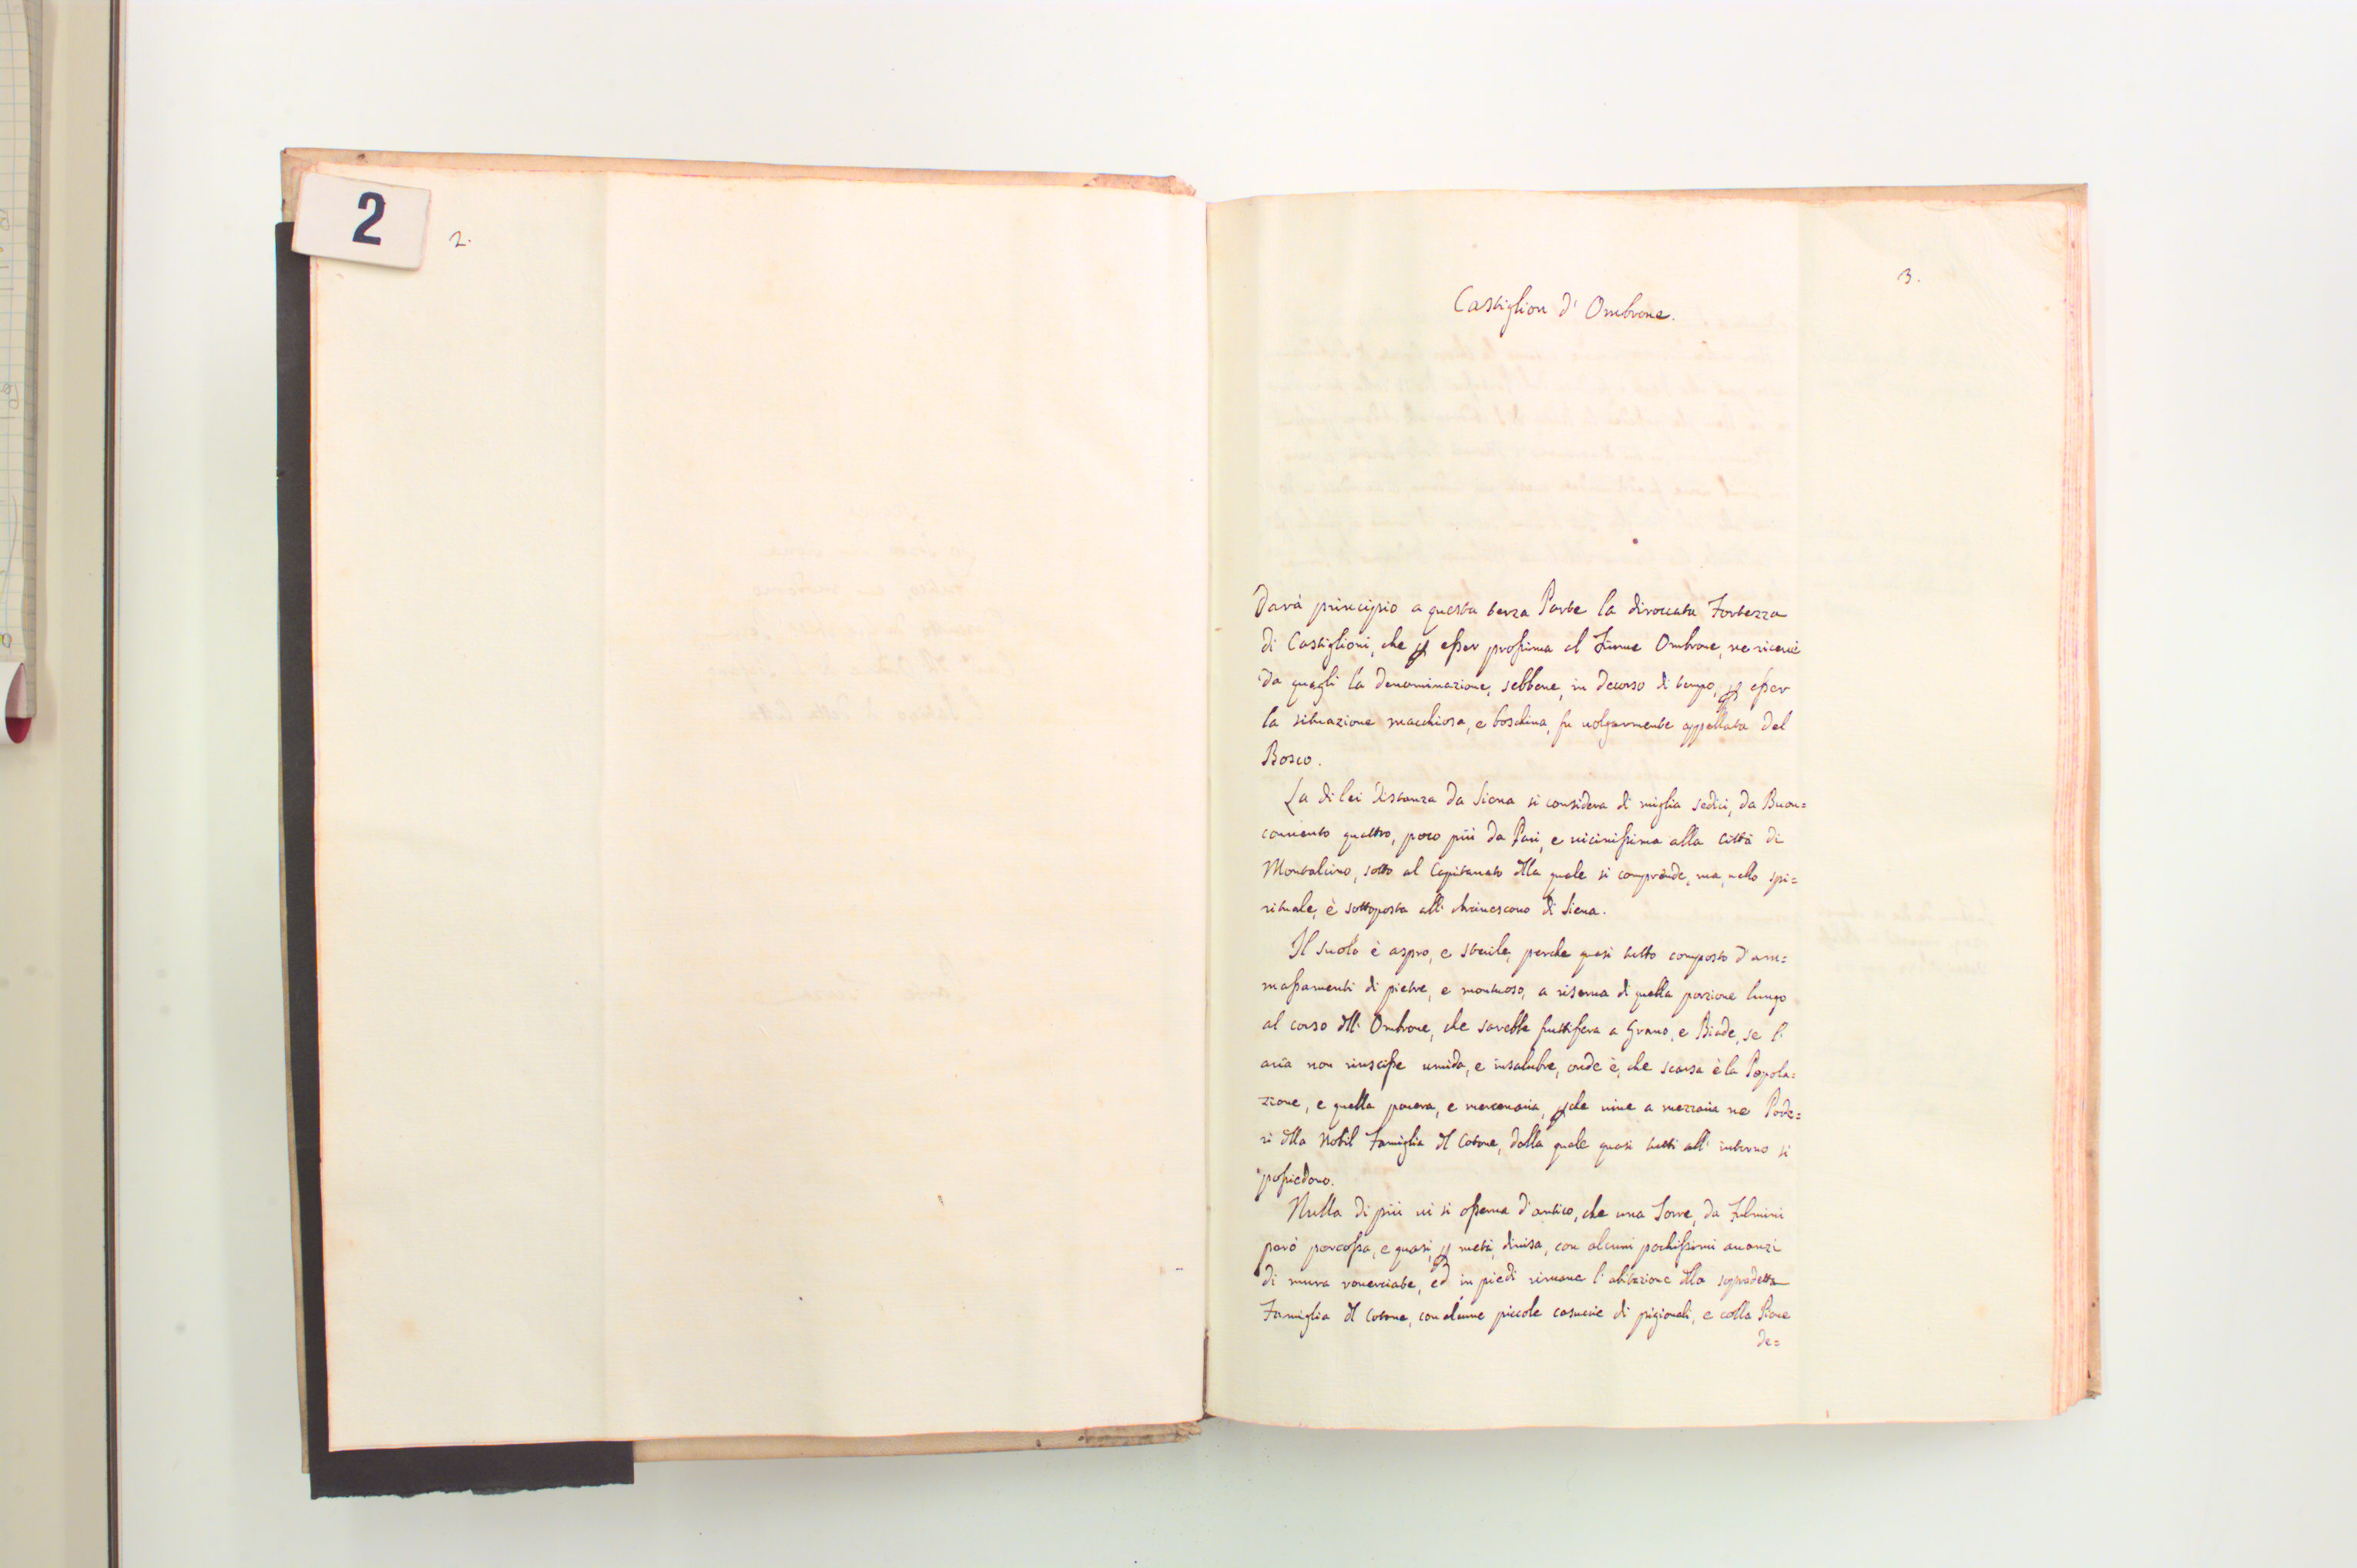 2
2.
3.
Castiglion d' Ombrone.
Darà principio a questa terza Parte la diroccata Fortezza
di Castiglioni, che p esser prossima al Fiume Ombrone, ne riceve
da quegli la denominazione, sebbene, in decorso di tempo, p esser
la situazione macchiosa, e boschiva, fu volgarmente appellata del
Bosco.
La di lei distanza da Siena si considera di miglia sedici, da Buon=
convento quattro, poco più da Pari, e vicinissima alla Città di
Montalcino, sotto al Capitanato dlla quale si comprende, ma, nello spi=
rituale, è sottoposta all' Arcivescovo di Siena.
Il suolo è aspro, e sterile, perche quasi tutto composto d'am=
massamenti di pietre, e montuoso, a riserva di quella porzione lungo
al corso dll' Ombrone, che sarebbe fruttifera a Grano, e Biade, se l'
aria non riuscisse umida, e insalubre, onde è, che scarsa è la Popola=
zione, e quella povera, e mercenaria, pche vive a mezzaria ne Pode=
ri dlla Nobil Famiglia dl Cotone, dalla quale quasi tutti all' intorno si
possiedono.
Nulla di più vi si osserva d'antico, che una Torre, da Fulmini
però percossa, e quasi, p metà, divisa, con alcuni pochissimi avanzi
di mura rovesciate, ed in piedi rimane l'abitazione dlla sopradetta
Famiglia dl Cotone, con alcune piccole casuccie di pigionali, e colla Pieve
de=